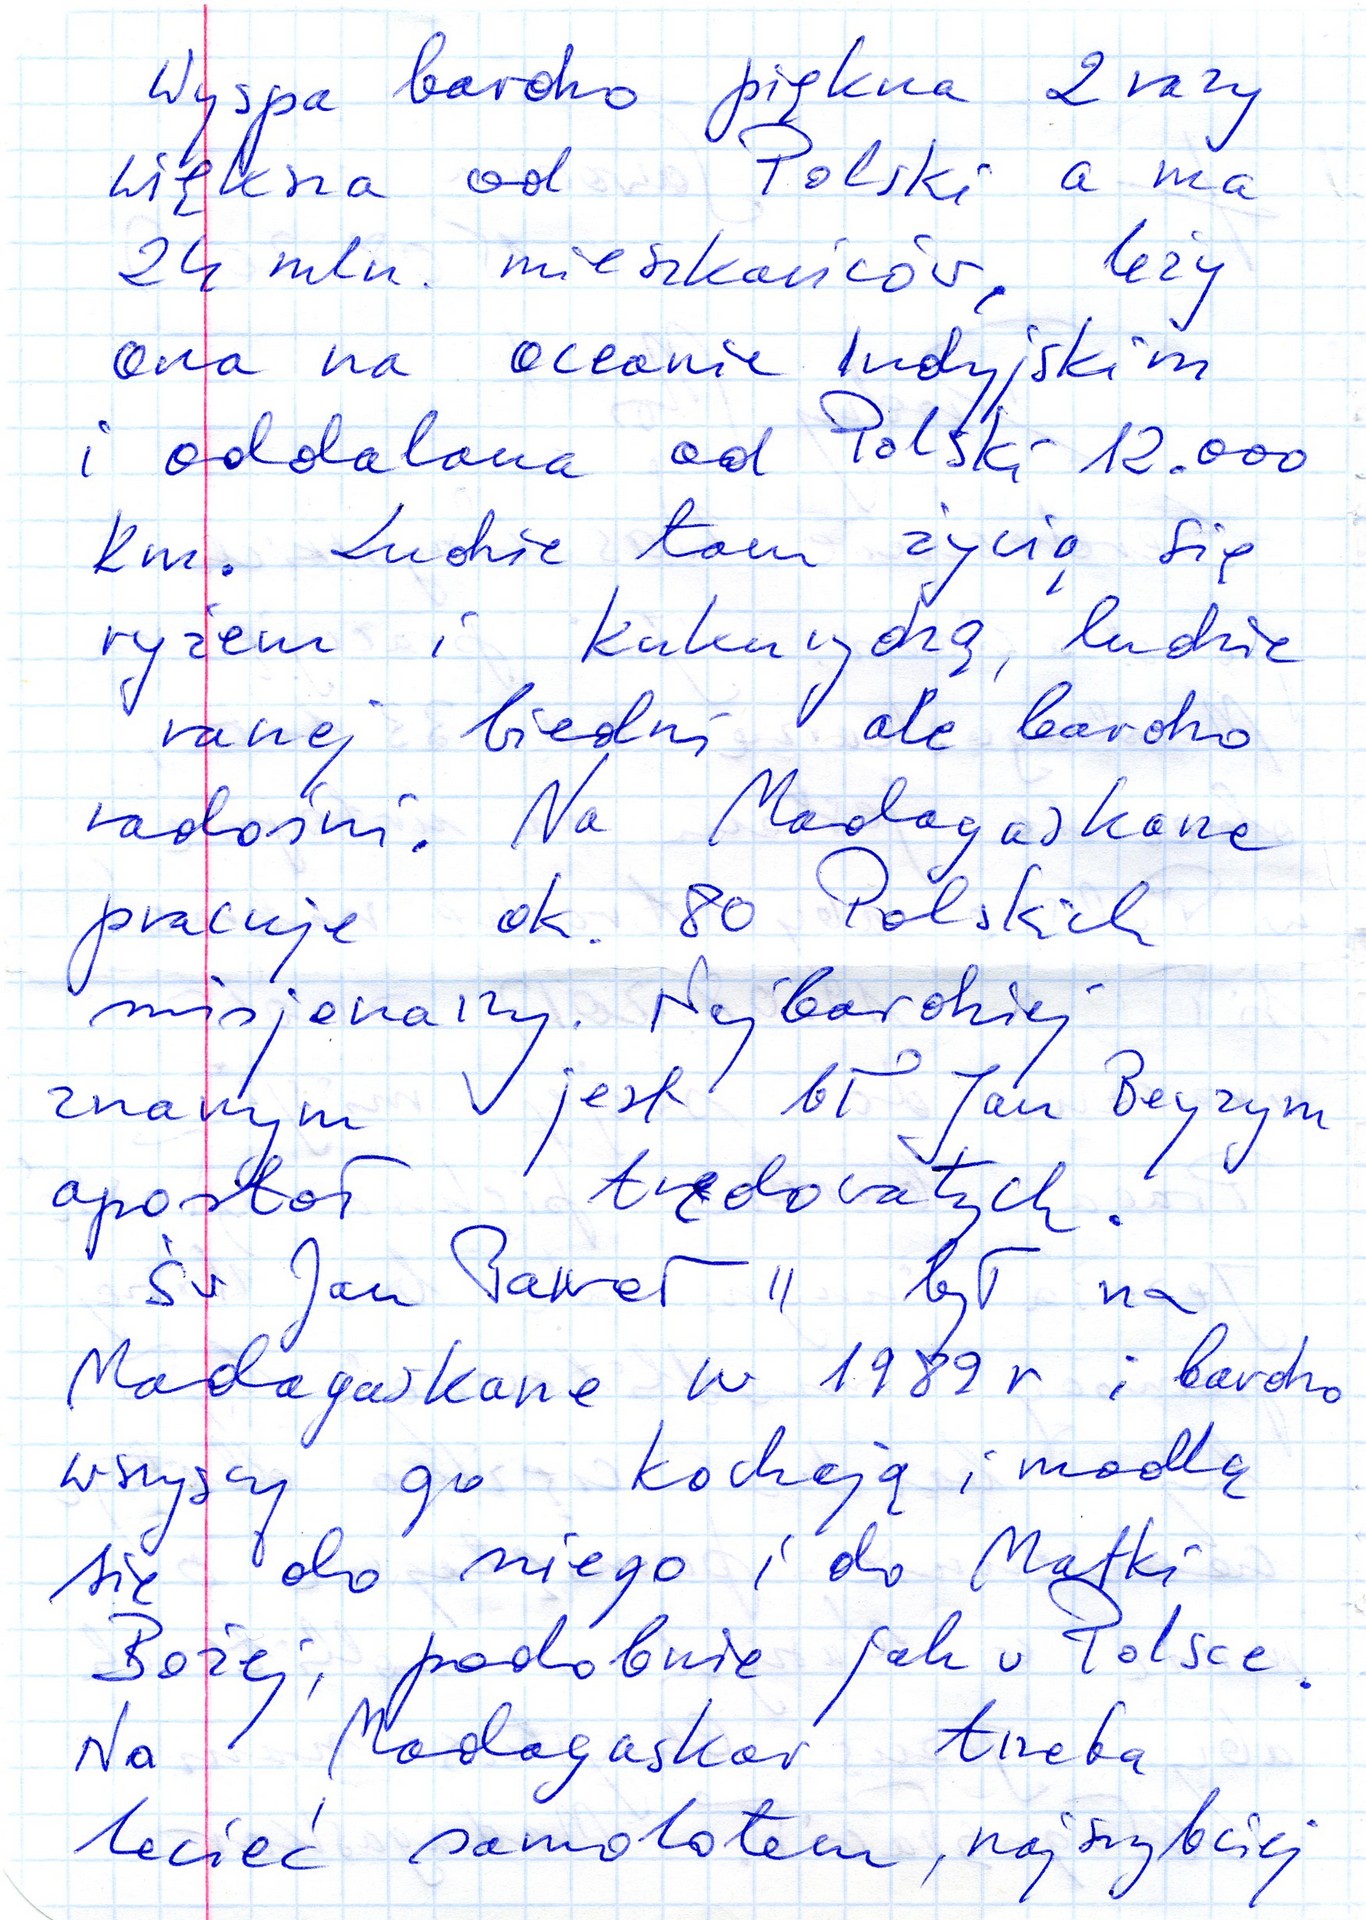 Wyspa bardzo piękna 2 razy
większa od Polski a ma
24 mln. mieszkańców, leży
ona na oceanie Indyjskim
i oddalona od Polski 12.000
km. Ludzie tam życią się
ryżem i kukurydzą, ludzie
raczej biedni ale bardzo
radośni. Na Madagaskarze
pracuje ok. 80 Polskich
misjonarzy. Najbardziej
znanym jest bł Jan Beyzym
apostoł trędowatych.
Św Jan Paweł II był na
Madagaskarze w 1989 r i bardzo
wszyscy go kochają i modlą
się do niego i do Matki
Bożej, podobnie jak w Polsce.
Na Madagaskar trzeba
lecieć samolotem, najszybciej